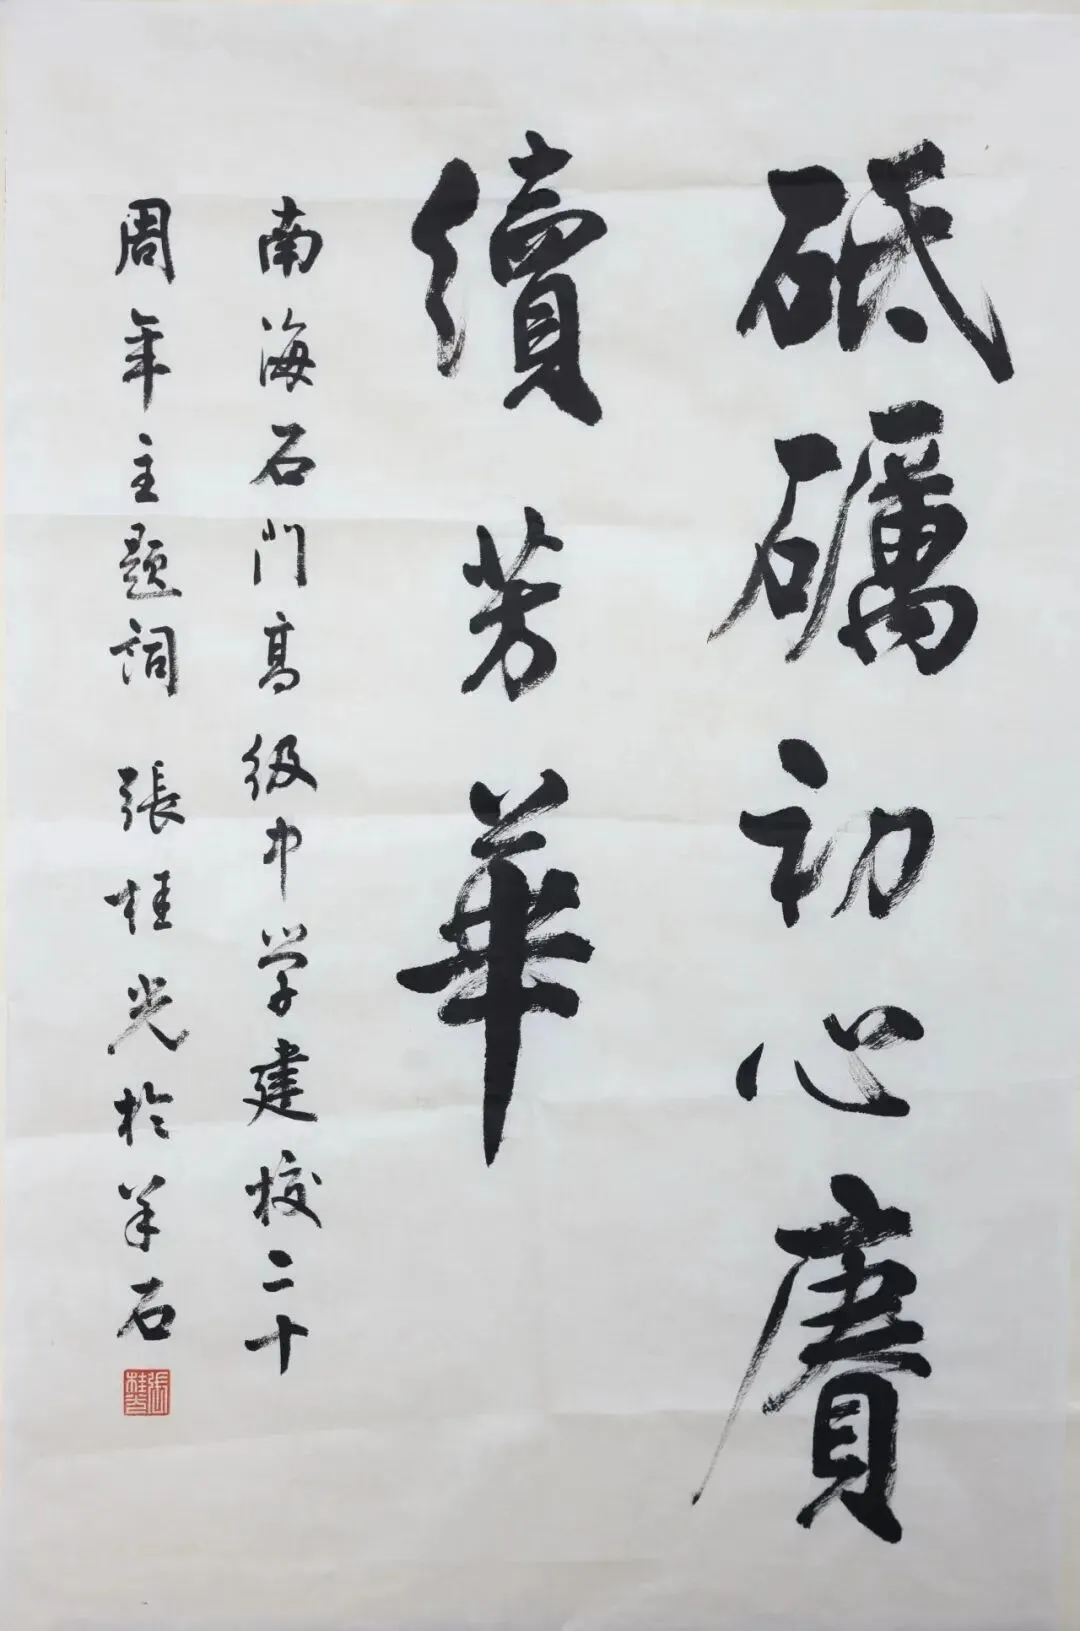 砥礪初心賡
續芳華
南海石門高级中学建校二十
周年主题詞 張桂光於羊石
張桂光